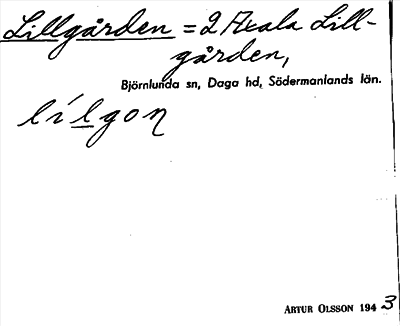 Lillgården = 2 Axala Lill-
gården,
Björnlunda sn, Daga hd, Södermanlands län.
lílgon
ARTUR OLSSON 1943